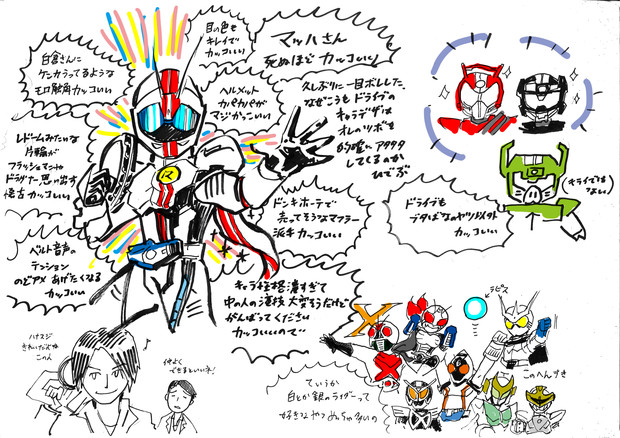 白倉さんに
ケンカうってるような
モロ触角カッコいい
目の色も
キレイで
カッコいい
マッハさん
死ぬほどカッコいい
ヘルメット
カパカパが
マジかっこいい
久しぶりに一目ボレした、
なぜこうもドライブの
キャラデザは
オレのツボを
的確にアタタタ
してくるのか
ひでぶ
レドームみたいな
片輪が
フラッシュマンや
ドラグナー思い出す
懐古カッコいい
ドンキホーテで
売ってそうなマフラー
派手カッコいい
ドライブも
ブタばなのヤツ以外
カッコいい
(キライではないよ)
ベルト音声の
テンション
のどアメあげたくなる
カッコいい
キャラ性格濃すぎて
中の人の演技大変そうだけど
がんばってください
カッコいいので
ハナスジ
きれいだよね
この人
仲よく
できるといいネ!
ていうか
白とか銀のライダーって
好きなやつめっちゃ多いの
ラピス
このへんすき
R